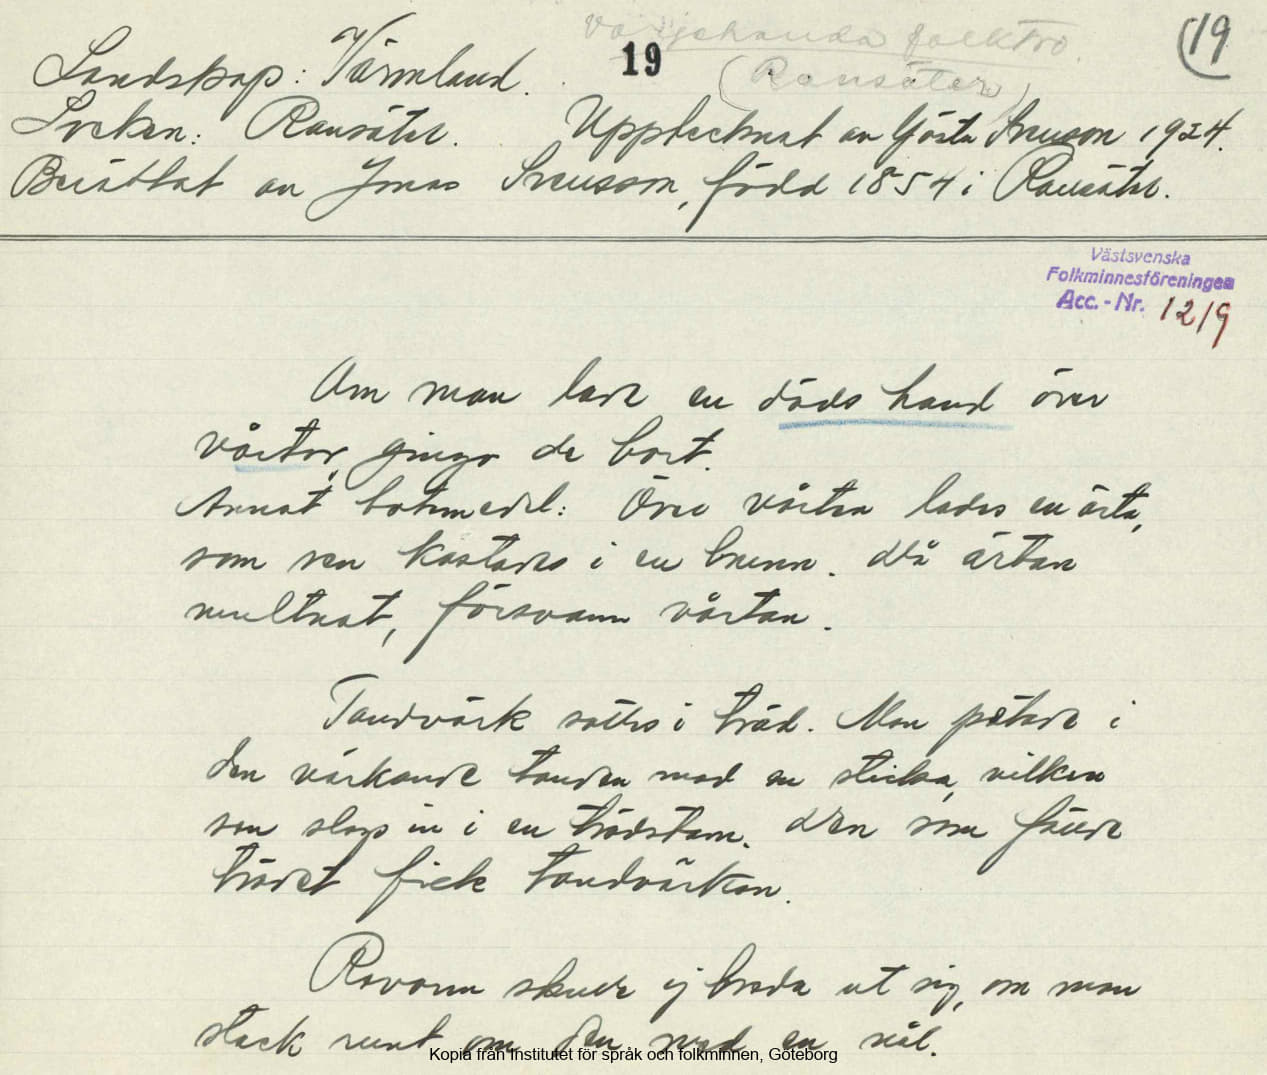 Varjehanda folktro
19
(19
(Ransäter)
Landskap: Värmland.
Socken: Ransäter. Upptecknat av Gösta Svenson 1924.
Berättat av Jonas Svensson, född 1854 i Ransäter.
Västsvenska
Folkminnesföreningen
Acc.-Nr. 1219
Om man lade en döds hand över
vårtor, gingo de bort.
Annat botemedel: Över vårtan lades en ärta,
som sen kastades i en brunn. Då ärtan
multnat, försvann vårtan.
Tandvärk sattes i träd. Man petade i
den värkande tanden med en sticka, vilken
sen slogs in i en trädstam. Den som fällde
trädet fick tandvärken.
Revorm skulle ej breda ut sig, om man
stack runt om den med en nål.
Kopia från Institutet för språk och folkminnen, Göteborg